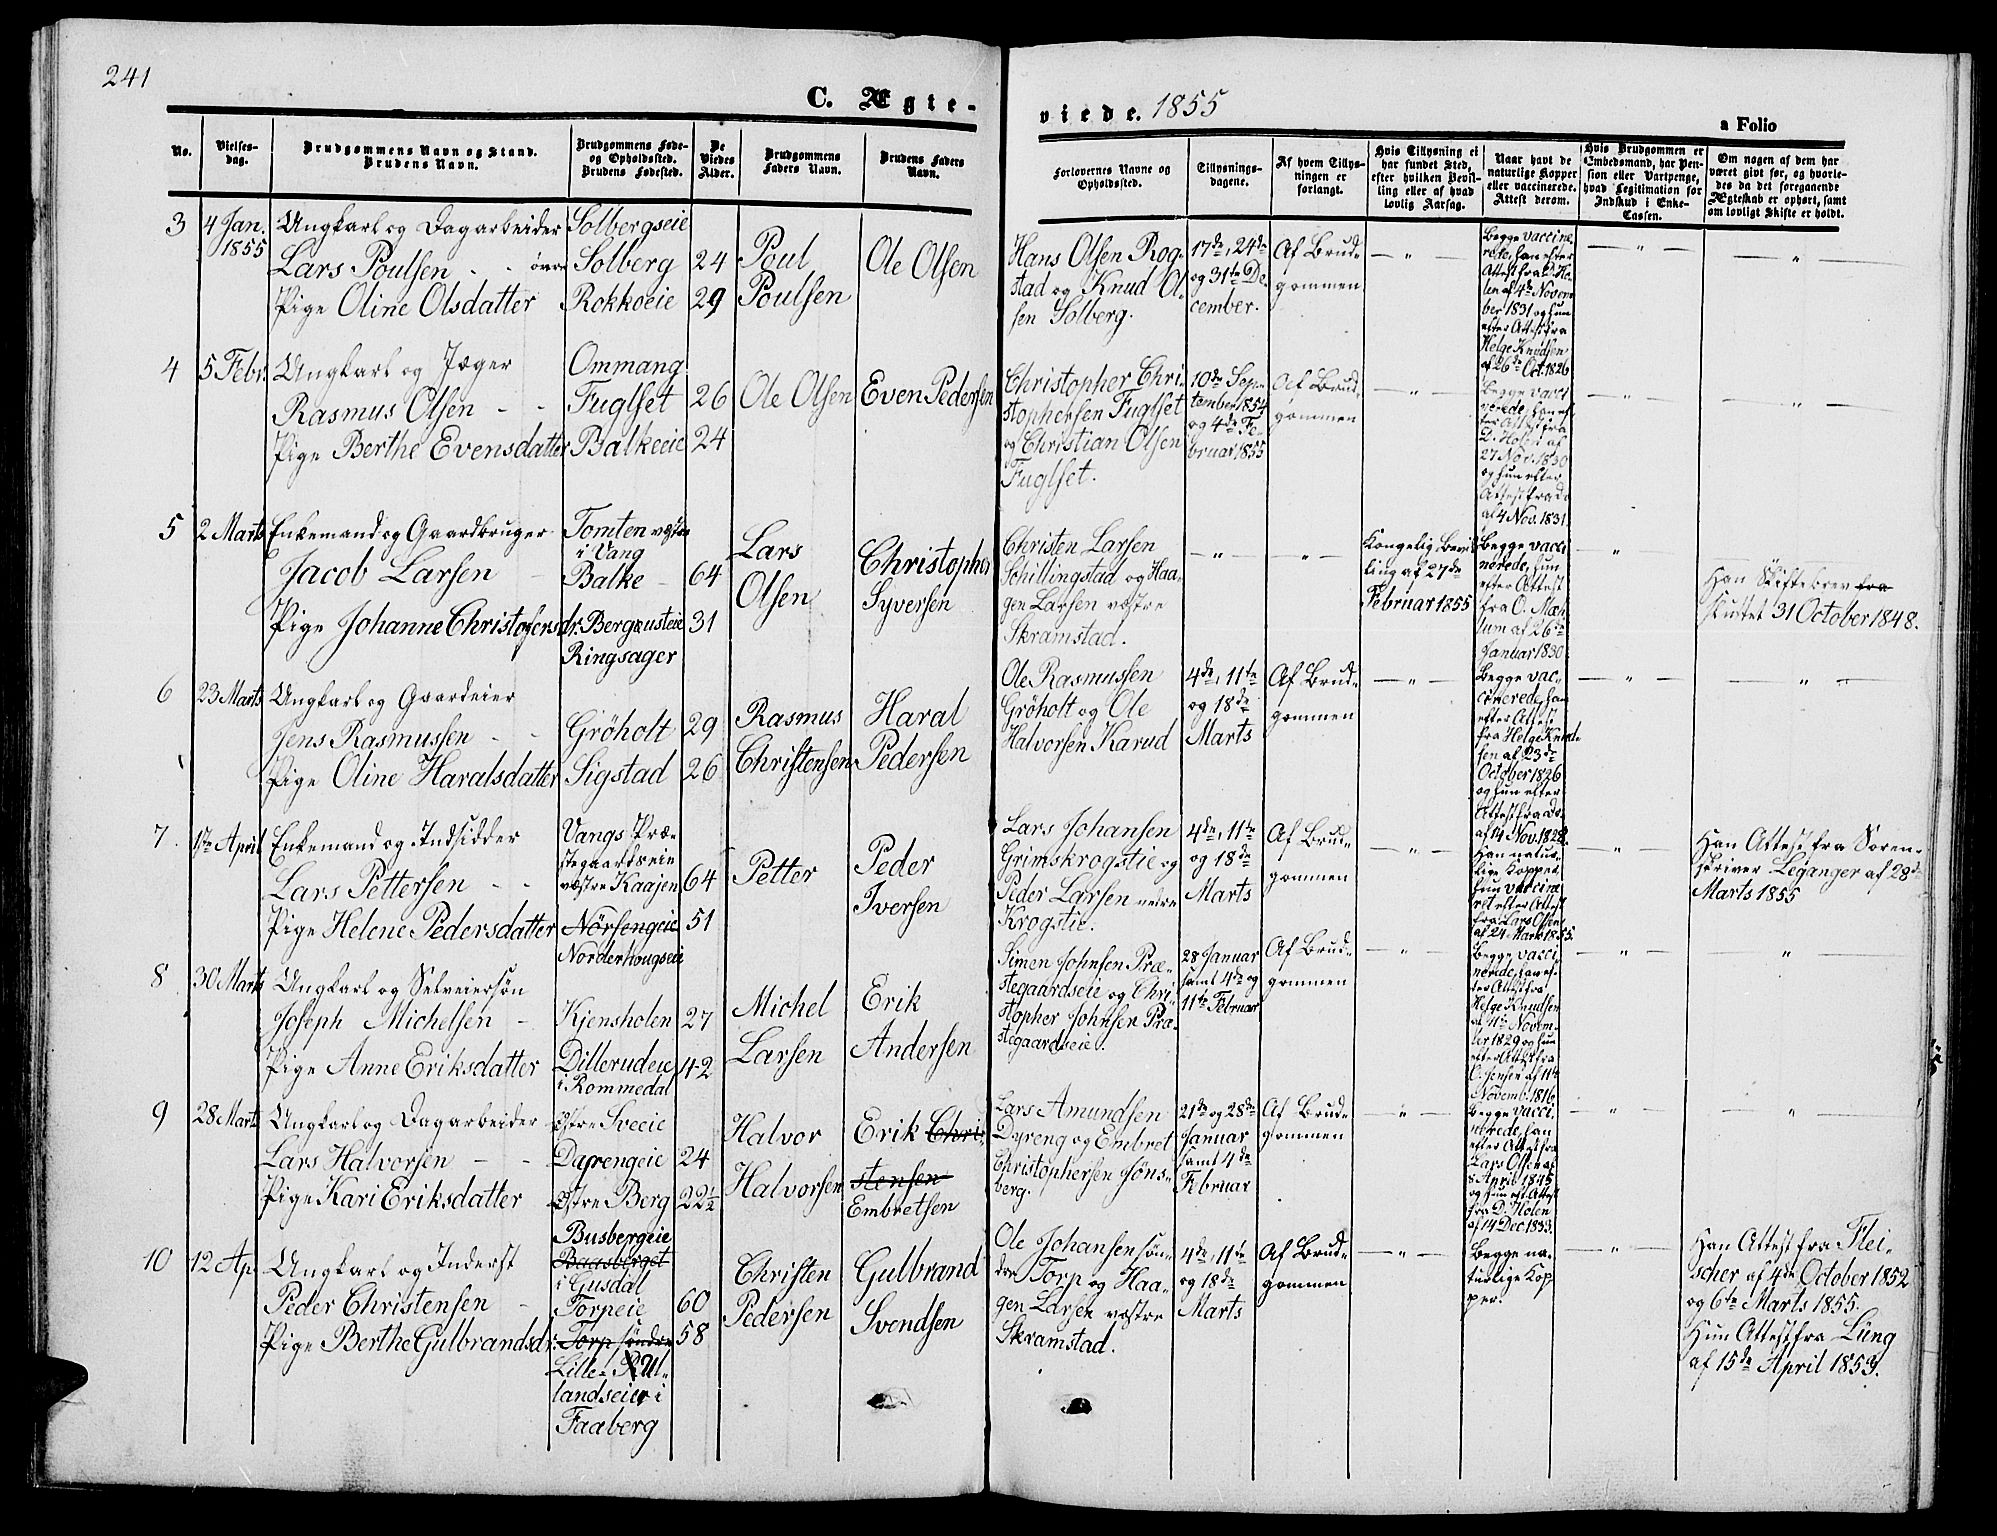 241
C. Ægte-
viede. 1855
a Folio
No.
Vielses-
dag.
Brudgommens Navn og Stand.
Brudens Navn.
Brudgommens Føde-
og Opholdssted.
Brudens Fødested.
De
Viedes
Alder.
Brudgommens
Faders Navn.
Brudens Faders
Navn.
Forlovernes Navne og
Opholdssted.
Tillysnings-
dagene.
Af hvem Tillys-
ningen er
forlangt.
Hvis Tillysning ei
har fundet Sted,
efter hvilken Bevil-
ling eller af hvad
lovlig Aarsag.
Naar havt de
naturlige Kopper
eller vaccinerede.
Attest derom.
Hvis Brudgommen er
Embedsmand, har Pen-
sion eller Vartpenge,
hvad Legitimation for
Indskud i Enke-
Cassen.
Om nogen af dem har
været givt før, og hvorle-
des da det foregaaende
Ægteskab er ophørt, samt
om lovligt Skifte er holdt.
3
4 Jan.
1855
Ungkarl og Dagarbeider
Lars Poulsen - - øvre
Pige Oline Olsdatter
Solbergseie
Solberg
Rokkoeie
24
29
Poul
Poulsen
Ole Olsen
Hans Olsen Rog-
stad og Knud Ol-
sen Solberg.
17de, 24de
og 31te De-
cember.
Af Brud-
gommen
— " —
Begge vaccine-
rede, han efter
Attest fra D. Ho-
len af 4de Novem-
ber 1831 og hun
efter Attest fra
Helge Knudsen
af 26de Oct. 1826
— " —
— " —
4
5 Febr.
Ungkarl og Jæger
Rasmus Olsen - -
Pige Berthe Evensdatter
Ommang
Fuglset
Balkeeie
26
24
Ole Olsen
Even Pedersen
Christopher Chri-
stophersen Fuglset
og Christian Olsen
Fuglset.
10de Sep-
tember 1854
og 4de Fe-
bruar 1855
Af Brud-
gommen
— " —
Begge vacci
nerede, han ef-
ter Attest fra
D. Holen af
27 Nov. 1830
og hun efter
Attest fra do
af 4 Nov. 1831.
— " —
— " —
5
2 Marts
Enkemand og Gaardbruger
Jacob Larsen -
Pige Johanne Christofersdr.
Tomten vestre
i Vang
Balke -
Bergeusteie
Ringsager
64
31
Lars
Olsen
Christopher
Syversen
Christen Larsen
Schillingstad og Haa-
gen Larsen vestre
Skramstad.
— " —
— " —
Kongelig Bevil
ling af 27de
Februar 1855
Begge vacci
nerede, hun
efter Attest
fra O. Mæh
lum af 26de
Januar 1830
— "
Han Skiftebrev fra
sluttet 31 October 1848.
6
23 Marts
Ungkarl og Gaardeier
Jens Rasmussen - -
Pige Oline Haralsdatter
Gröholt
Sigstad
29
26
Rasmus
Christensen
Haral
Pedersen
Ole Rasmussen
Gröholt og Ole
Halvorsen Karud
4de, 11te
og 18de
Marts
Af Brud-
gommen
— " —
Begge vac-
cinerede, han
efter Attest
fra Helge Knud-
sen af 23de
October 1826
og hun efter
Attest fra do.
af 14 Nov. 1828.
— " —
" —
7.
1ste April
Enkemand og Indsidder
Lars Pettersen - -
Pige Helene Pedersdatter
Vangs Præ-
stegaardseie
vestre Kaajen
Nörsengeie
Norderhougseie
64
51
Petter
Peder
Iversen
Lars Johansen
Grimskrogstie og
Peder Larsen nedre
Krogstie.
4de, 11te
og 18de
Marts
Af Brud-
gommen
— " —
Han natur-
lige Kopper,
hun vaccine
ret efter Attest
fra Lars Olsen
af 24 Marts 1855.
— " —
Han Attest fra Soren-
skriver Leganger af 28de
Marts 1855
8
30 Marts
Ungkarl og Selveiersøn
Joseph Michelsen -
Pige Anne Eriksdatter
Kjensholen
Dillerudeie
i Rommedal
27
42
Michel
Larsen
Erik
Andersen
Simen Johnsen Præ-
stegaardseie og Chri-
stopher Johnsen Præ-
stegaardseie.
28 Januar
samt 4de og
11te Februar
Af Brud-
gommen
— " —
Begge vacci
nerede, han ef-
ter Attest fra
Helge Knudsen
af 11te Novem-
ber 1829 og hun
efter Attest fra
O. Jensen af 11te
Novemb. 1816.
— " —
"
9
28 Marts
Ungkarl og Dagarbeider
Lars Halvorsen - -
Pige Kari Eriksdatter
Østre Sveeie
Dærengeie
Østre Berg
24
22½
Halvor
Halvorsen
Erik Chri-
stensen
Embretsen
Lars Amundsen
Dyreng og Embret
Christophersen Jöns-
berg.
21de og 28de
Januar
samt 4de
Februar
Af Brud-
gommen
— " —
Begge vacci-
nerede, han
efter Attest fra
Lars Olsen af
8 April 1845
og hun eft. Attest
fra D. Holen
af 14 Dec. 1833.
— " —
"
10
12 Ap.
Ungkarl og Inderst
Peder Christensen -
Pige Berthe Gulbrandsdr.
Busbergeie
Baasberget
i Gusdal
Torpeie
Torp søndre
Lille-Rul-
landseier i
Faaberg
60
58
Christen
Pedersen
Gulbrand
Svendsen
Ole Johansen søn-
dre Torp og Haa-
gen Larsen vestre
Skramstad.
4de, 11te
og 18de
Marts
Af Brud-
gommen
— " —
Begge na-
turlige Kop
per.
— " —
Han Attest fra Flei-
scher af 4de October 1852
og 6te Marts 1855.
Hun Attest fra Lüng
af 15de April 1853.